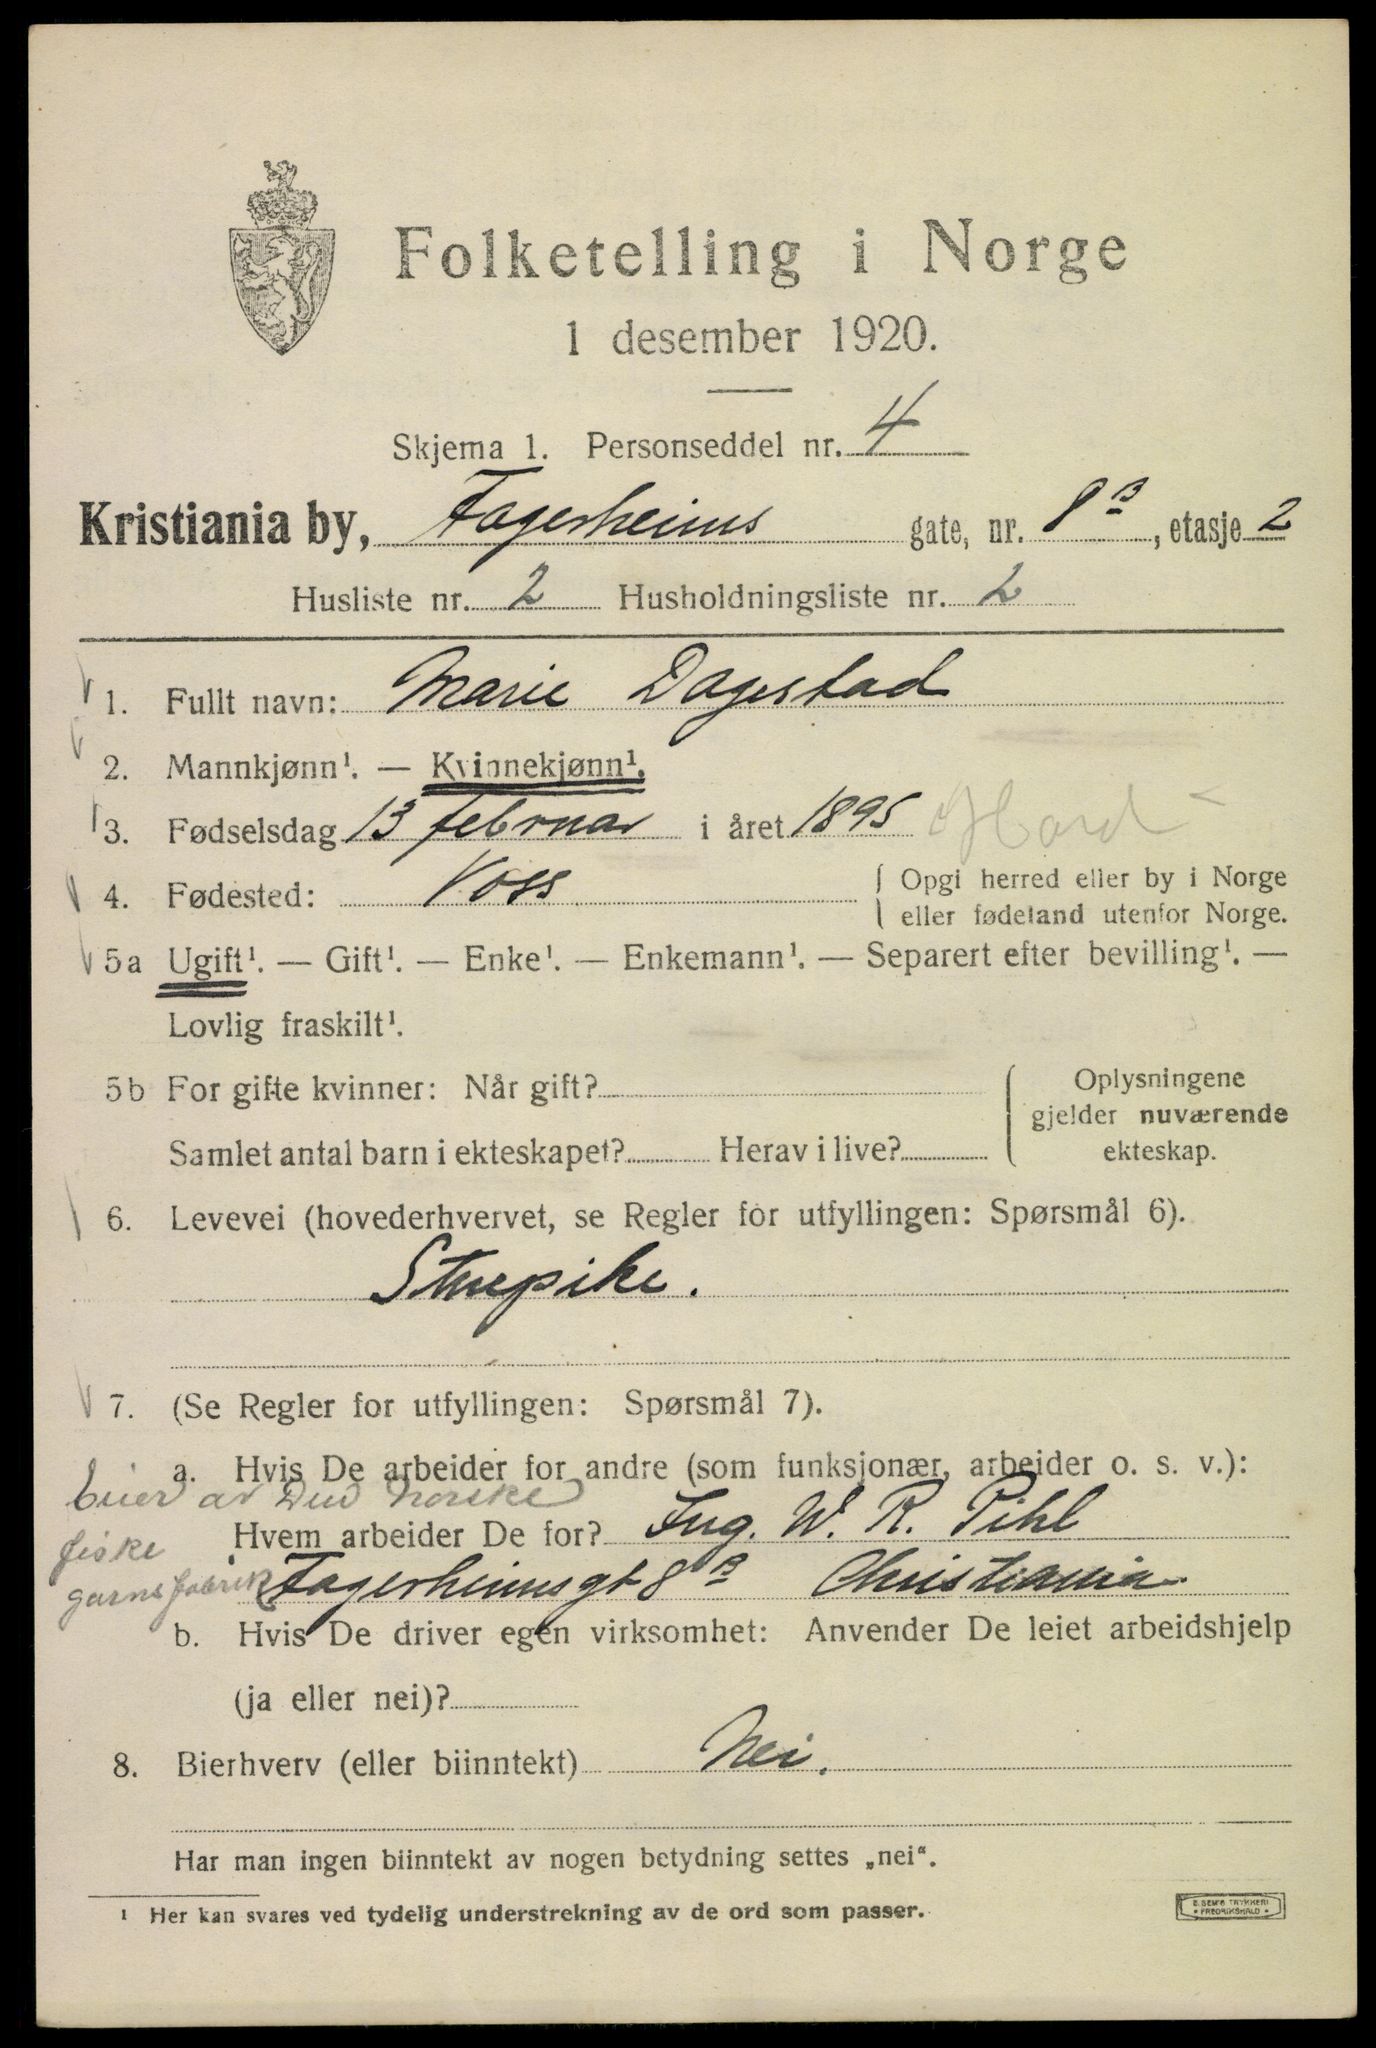 Folketelling i Norge
1 desember 1920.
Skjema 1. Personseddel nr. 4
Kristiania by, Fagerheims gate, nr. 8B, etasje 2
Husliste nr. 2 Husholdningsliste nr. 2
1. Fullt navn: Marie Dagestad
2. Mannkjønn¹. — Kvinnekjønn¹.
3. Fødselsdag 13 februar i året 1895 Hord
4. Fødested: Voss { Opgi herred eller by i Norge
eller fødeland utenfor Norge.
5a Ugift¹. — Gift¹. — Enke¹. — Enkemann¹. — Separert efter bevilling¹. —
Lovlig fraskilt¹.
5b For gifte kvinner: Når gift? { Oplysningene
gjelder nuværende
Samlet antal barn i ekteskapet? Herav i live? ekteskap.
6. Levevei (hovederhvervet, se Regler for utfyllingen: Spørsmål 6).
Stuepike.
7. (Se Regler for utfyllingen: Spørsmål 7).
a. Hvis De arbeider for andre (som funksjonær, arbeider o. s. v.):
Eier av Den norske
Hvem arbeider De for? Ing. W. R. Pihl
fiske
garnsfabrik Fagerheimsgt 8B Christiania
b. Hvis De driver egen virksomhet: Anvender De leiet arbeidshjelp
(ja eller nei)?
8. Bierhverv (eller biinntekt) Nei.
Har man ingen biinntekt av nogen betydning settes „nei“.
¹ Her kan svares ved tydelig understrekning av de ord som passer.
E. SEM'S TRYKKERI
• FREDRIKSHALD •